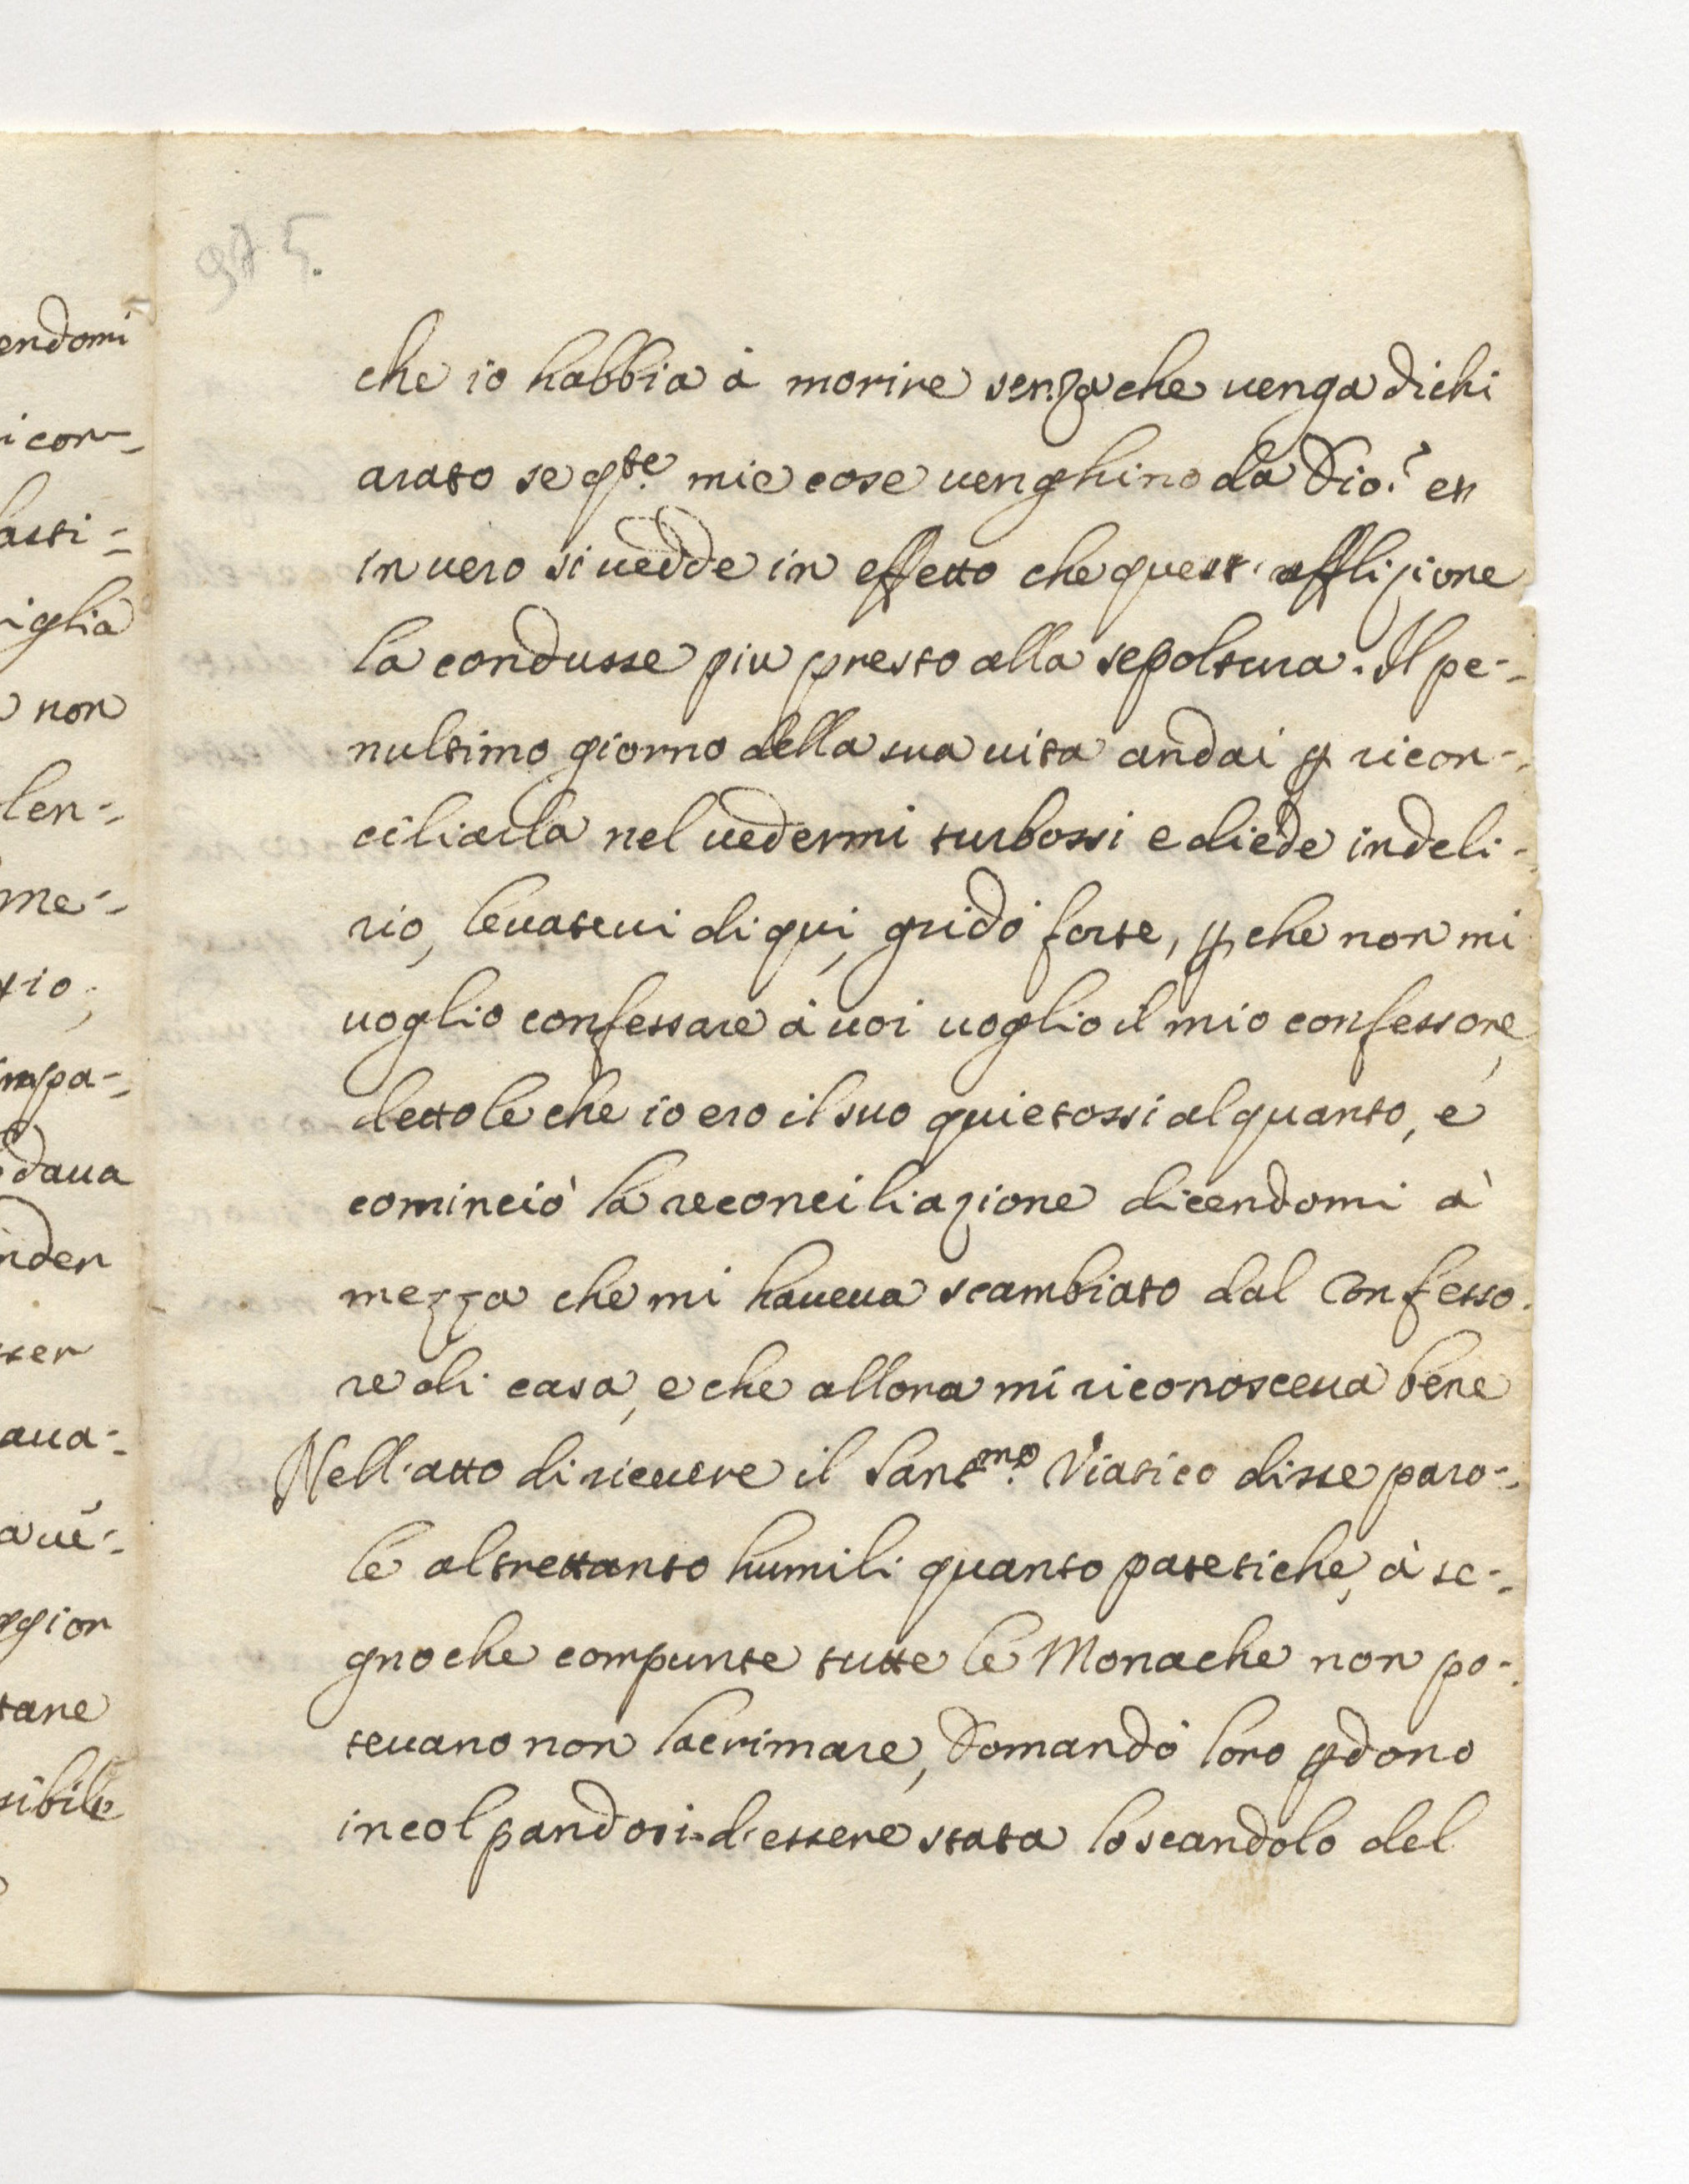 che io habbia à morire senza che uenga dichi
arato se q.te mie cose uenghino da Dio? et
in uero si uedde in effetto che quest'afflizione
la condusse piu presto alla sepoltura. Il pe=
nultimo giorno della sua uita andai ꝑ ricon=
ciliarla nel uedermi turbossi e diede in deli=
rio, leuateui di qui, gridò forte, ꝑche non mi
uoglio confessare à uoi uoglio il mio confessore,
dettole che io ero il suo quietossi alquanto, e
cominciò la reconciliazione dicendomi à
mezza che mi haueua scambiato dal Confesso=
re di casa, e che allora mi riconosceua bene
Nell'atto di riceuere il Sant.mo Viatico disse paro=
le altrettanto humili quanto patetiche, à se=
gno che compunte tutte le Monache non po=
teuano non lacrimare, Domandò loro ꝑdono
incolpandosi d'essere stata lo scandolo del
endomi
icon=
iglia
non
len=
me=
impa=
daua
nder
aua=
ggior
tare
sibile